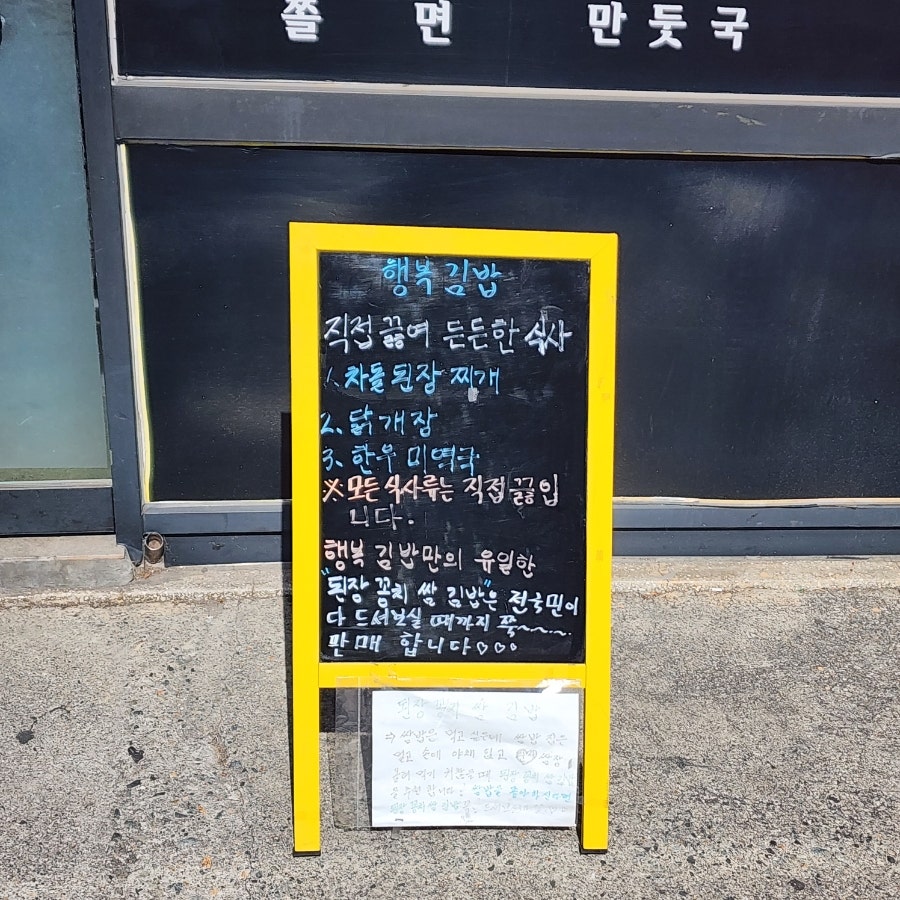 쫄면 만둣국
행복김밥
직접 끓여 든든한 식사
1. 차돌된장 찌개
2. 닭개장
3. 한우 미역국
※ 모든 식사류는 직접 끓입
니다.
행복 김밥만의 유일한
"된장 꽁치 쌈 김밥"은 전국민이
다 드셔보실 때까지 쭉~~~.
판매 합니다♡♡♡
된장 꽁치 쌈 김밥
⇒ 쌈밥은 먹고 싶은데 쌈밥 집은
멀고 손에 야채 들고